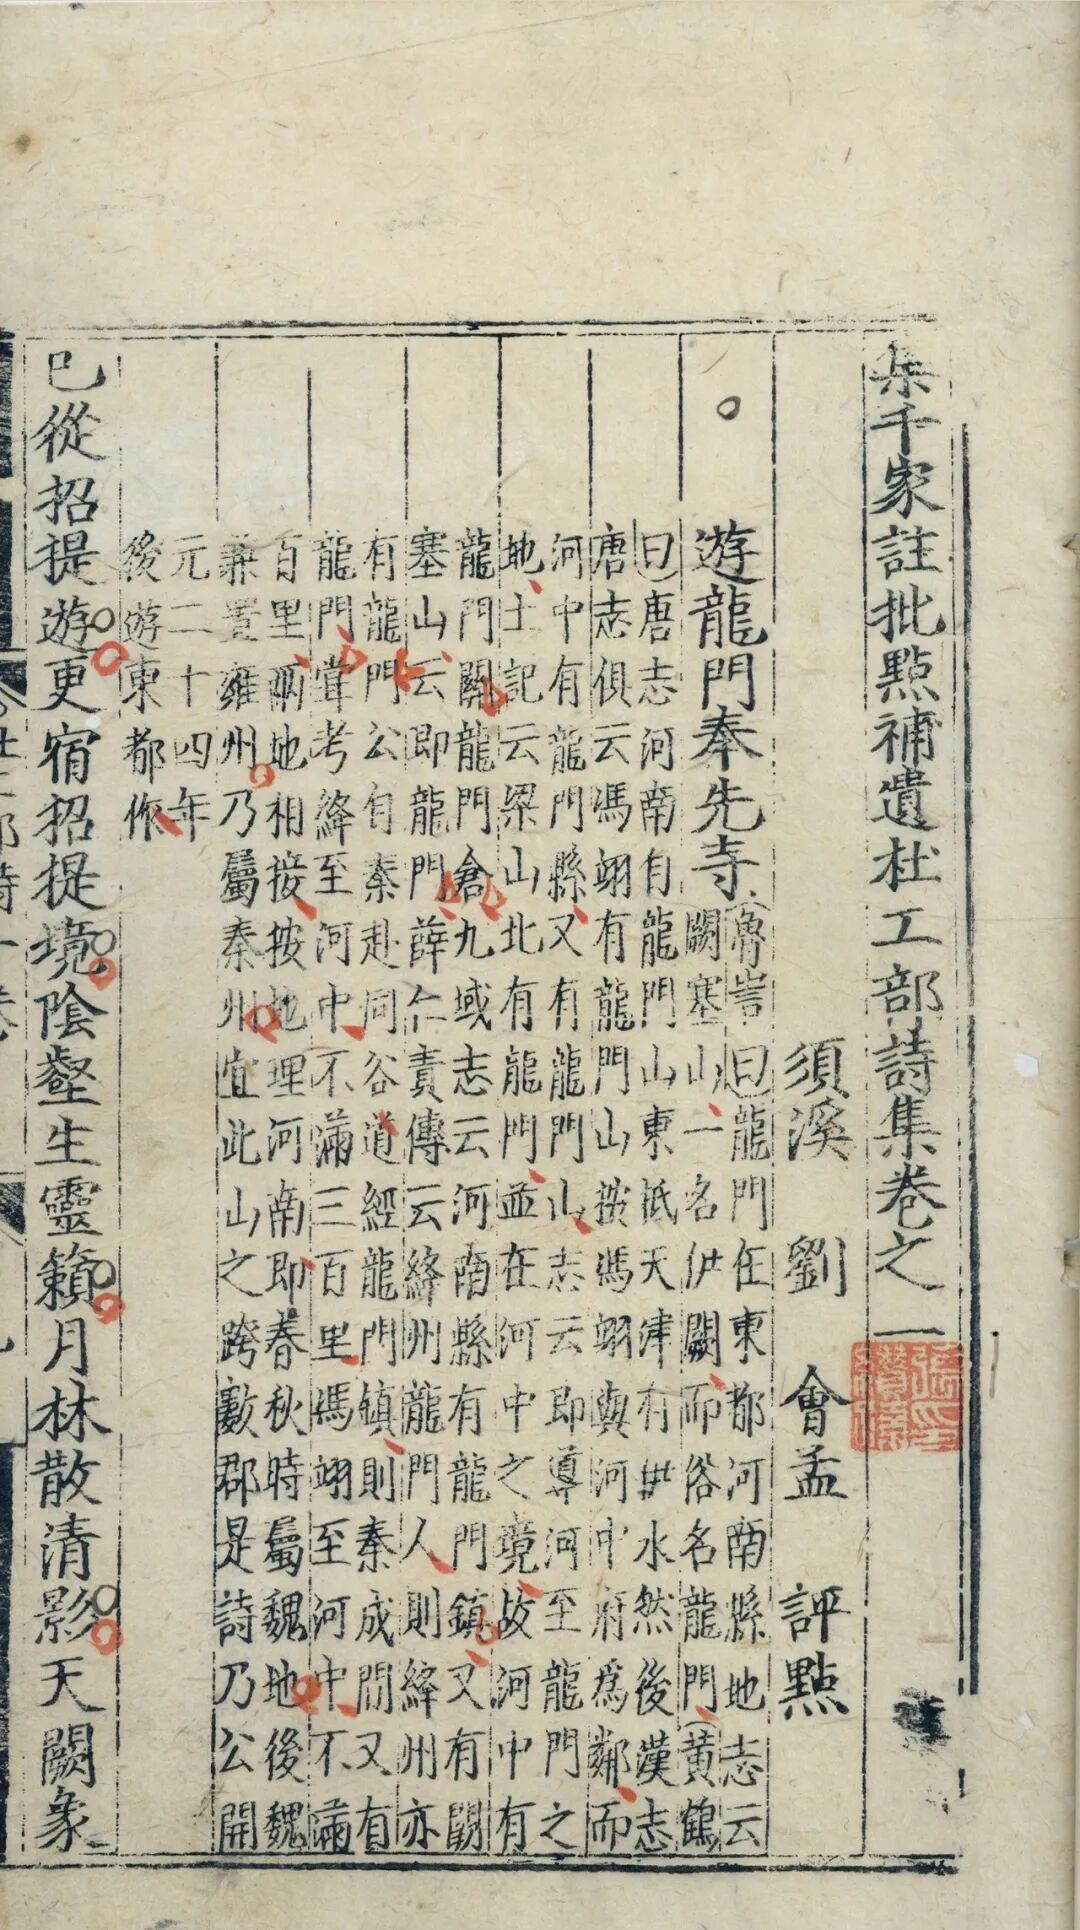 集千家註批點補遺杜工部詩集卷之一
須溪 劉 會孟 評點
遊龍門奉先寺
魯訔曰龍門在東都河南縣地志云
闕塞山一名伊闕而俗名龍門黃鶴
曰唐志河南有龍門山東抵天津有伊水然後漢志
唐志俱云馮翊有龍門山按馮翊與河中府為鄰而
河中有龍門縣又有龍門山志云即導河至龍門之
地土記云梁山北有龍門並在河中之境故河中有
龍門關龍門倉九域志云河南縣有龍門鎮又有闕
塞山云即龍門薛仁貴傳云絳州龍門人則絳州亦
有龍門公自秦赴同谷道經龍門鎮則秦成間又有
龍門嘗考絳至河中不滿三百里馮翊至河中不滿
百里兩地相接按地理河南即春秋時屬魏地後魏
兼置雍州乃屬秦州宜此山之跨數郡是詩乃公開
元二十四年
後遊東都作
已從招提遊更宿招提境陰壑生靈籟月林散清影天闕象